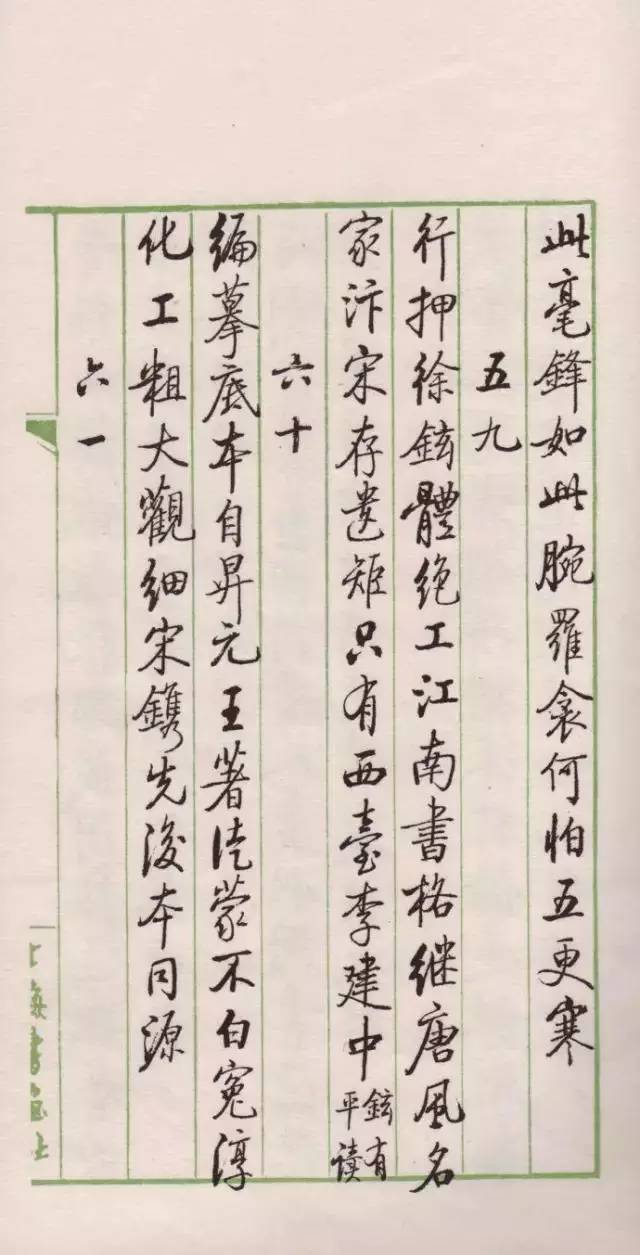 此毫鋒如此腕羅衾何怕五更寒
五九
行押徐鉉體絶工江南書格継唐風名
家汴宋存遺矩只有西臺李建中鉉有平读
六十
編摹底本自昇元王著徒蒙不白冤淳
化工粗大觀细宋鐫先後本同源
六一
上海書画社